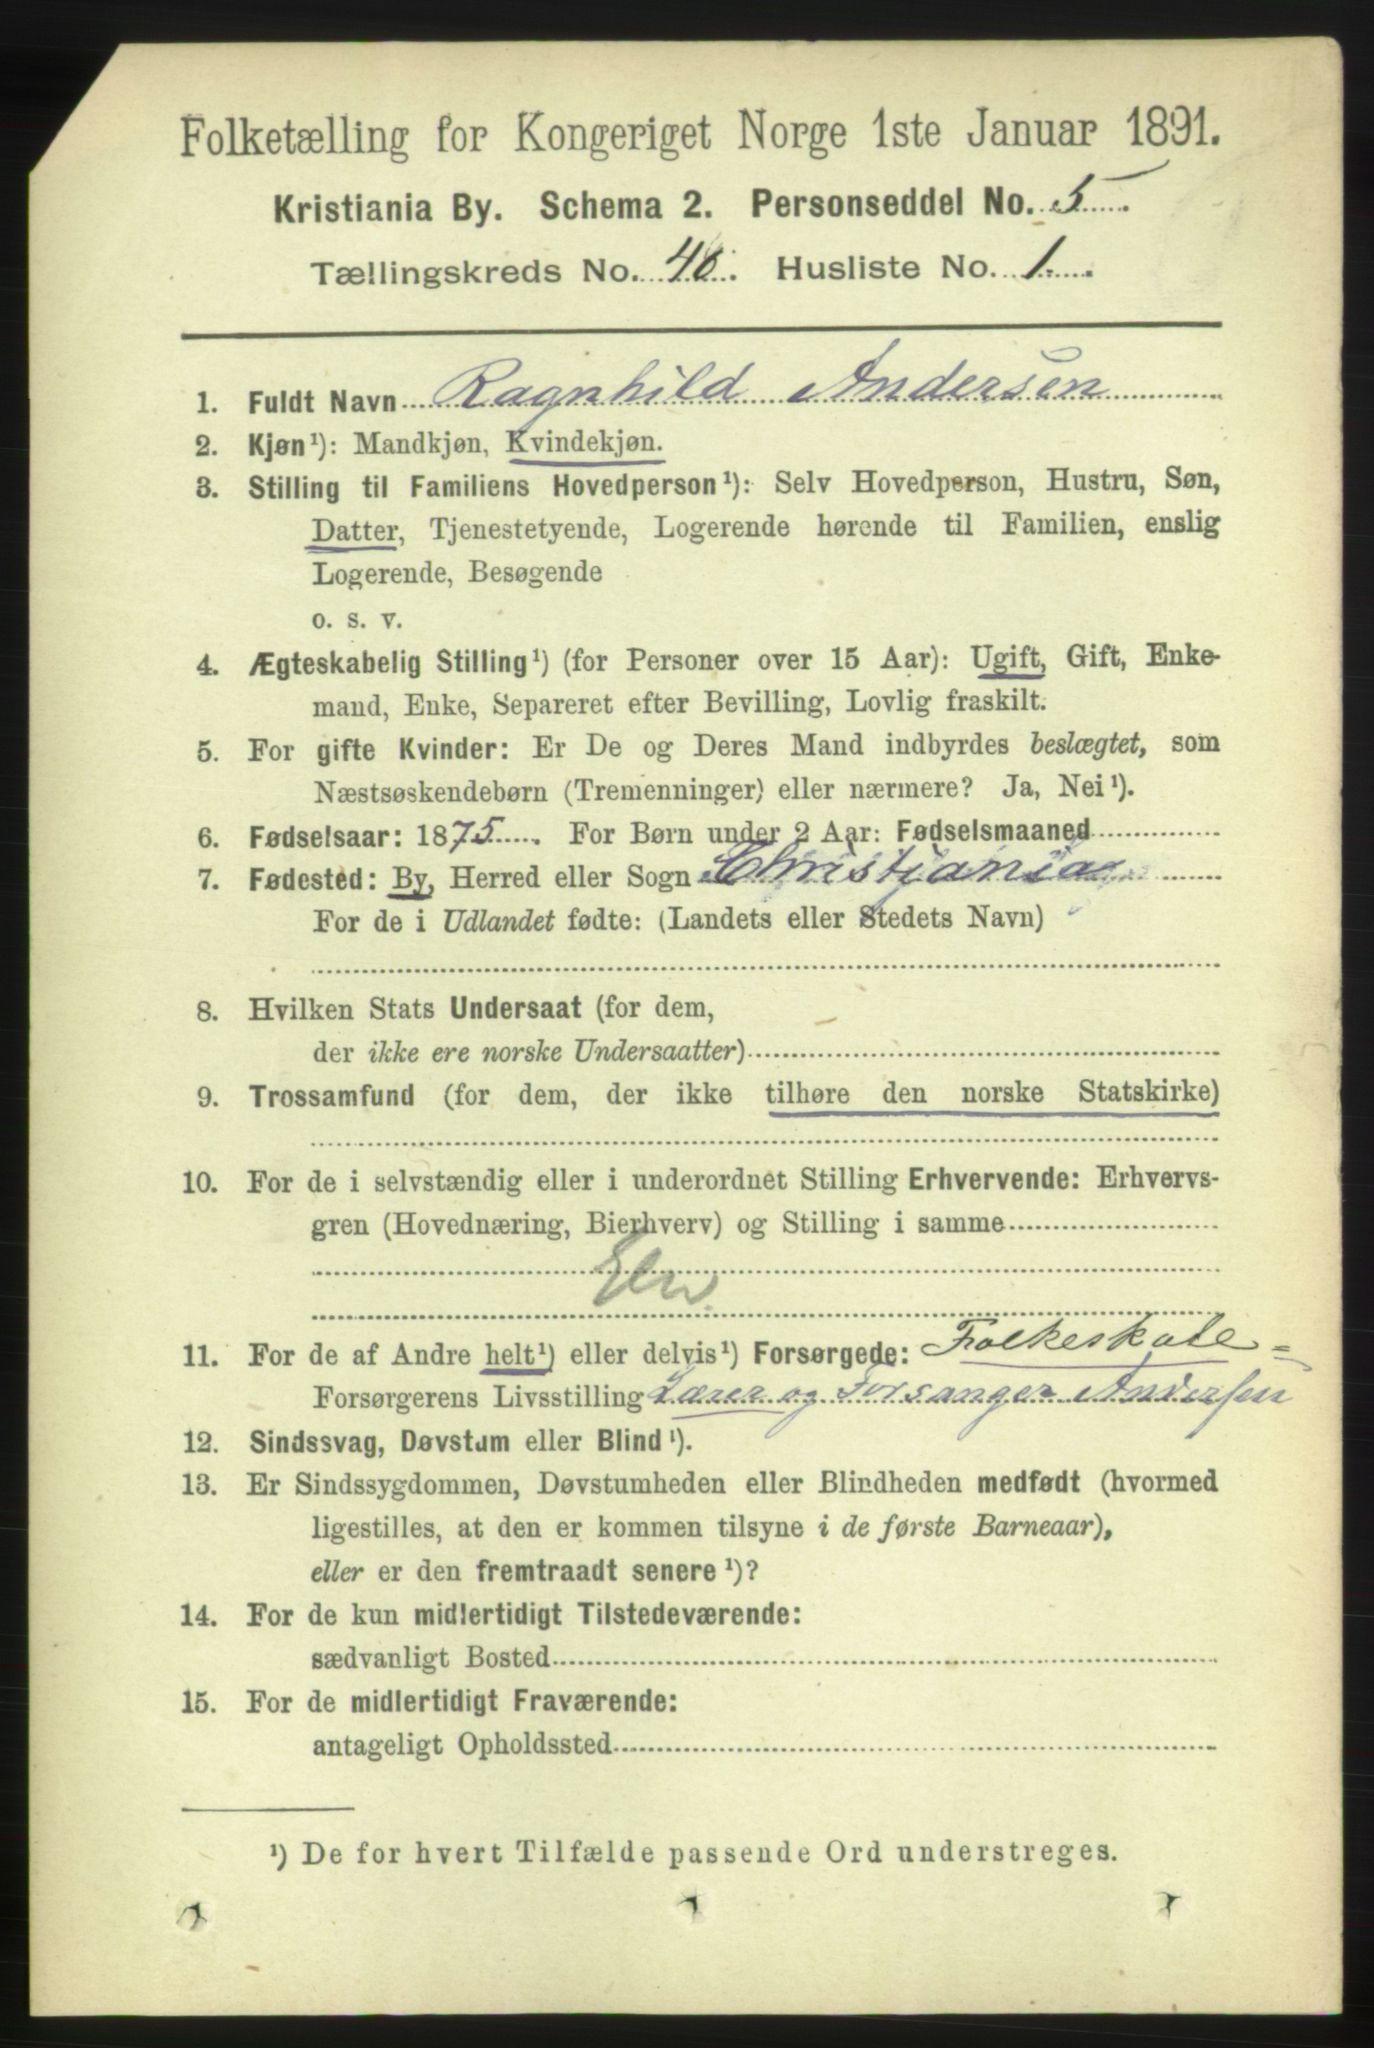 Folketælling for Kongeriget Norge 1ste Januar 1891.
Kristiania By. Schema 2. Personseddel No. 5
Tællingskreds No. 40. Husliste No. 1
1. Fuldt Navn Ragnhild Andersen
2. Kjøn¹): Mandkjøn, Kvindekjøn.
3. Stilling til Familiens Hovedperson¹): Selv Hovedperson, Hustru, Søn,
Datter, Tjenestetyende, Logerende hørende til Familien, enslig
Logerende, Besøgende
o. s. v.
4. Ægteskabelig Stilling¹) (for Personer over 15 Aar): Ugift, Gift, Enke-
mand, Enke, Separeret efter Bevilling, Lovlig fraskilt.
5. For gifte Kvinder: Er De og Deres Mand indbyrdes beslægtet, som
Næstsøskendebørn (Tremenninger) eller nærmere? Ja, Nei¹).
6. Fødselsaar: 1875. For Børn under 2 Aar: Fødselsmaaned
7. Fødested: By, Herred eller Sogn Christjania
For de i Udlandet fødte: (Landets eller Stedets Navn)
8. Hvilken Stats Undersaat (for dem,
der ikke ere norske Undersaatter)
9. Trossamfund (for dem, der ikke tilhøre den norske Statskirke)
10. For de i selvstændig eller i underordnet Stilling Erhvervende: Erhvervs-
gren (Hovednæring, Bierhverv) og Stilling i samme
11. For de af Andre helt¹) eller delvis¹) Forsørgede: Folkeskole=
Forsørgerens Livsstilling Lærer og Forsanger Andersen
12. Sindssvag, Døvstum eller Blind¹).
13. Er Sindssygdommen, Døvstumheden eller Blindheden medfødt (hvormed
ligestilles, at den er kommen tilsyne i de første Barneaar),
eller er den fremtraadt senere¹)?
14. For de kun midlertidigt Tilstedeværende:
sædvanligt Bosted
15. For de midlertidigt Fraværende:
antageligt Opholdssted
¹) De for hvert Tilfælde passende Ord understreges.